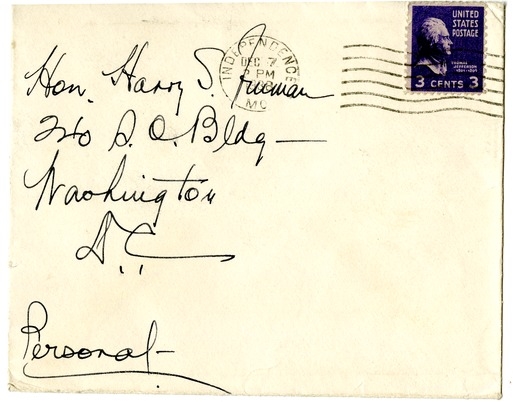 INDEPENDENCE
DEC 7
PM
MO
UNITED
STATES
POSTAGE
THOMAS
JEFFERSON
3 CENTS 3
Hon. Harry S. Truman
240 S. O. Bldg—
Washington
D.C.
Personal—